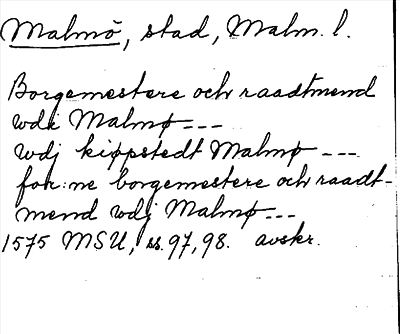 Malmö, stad, Malm. l.
Borgemestere och raadtmend
wdi Malmø ---
wdj kiøpstedt Malmø ---
for:ne borgemestere och raadt-
mend wdj Malmø ---
1575 MSU, ss. 97, 98. avskr.